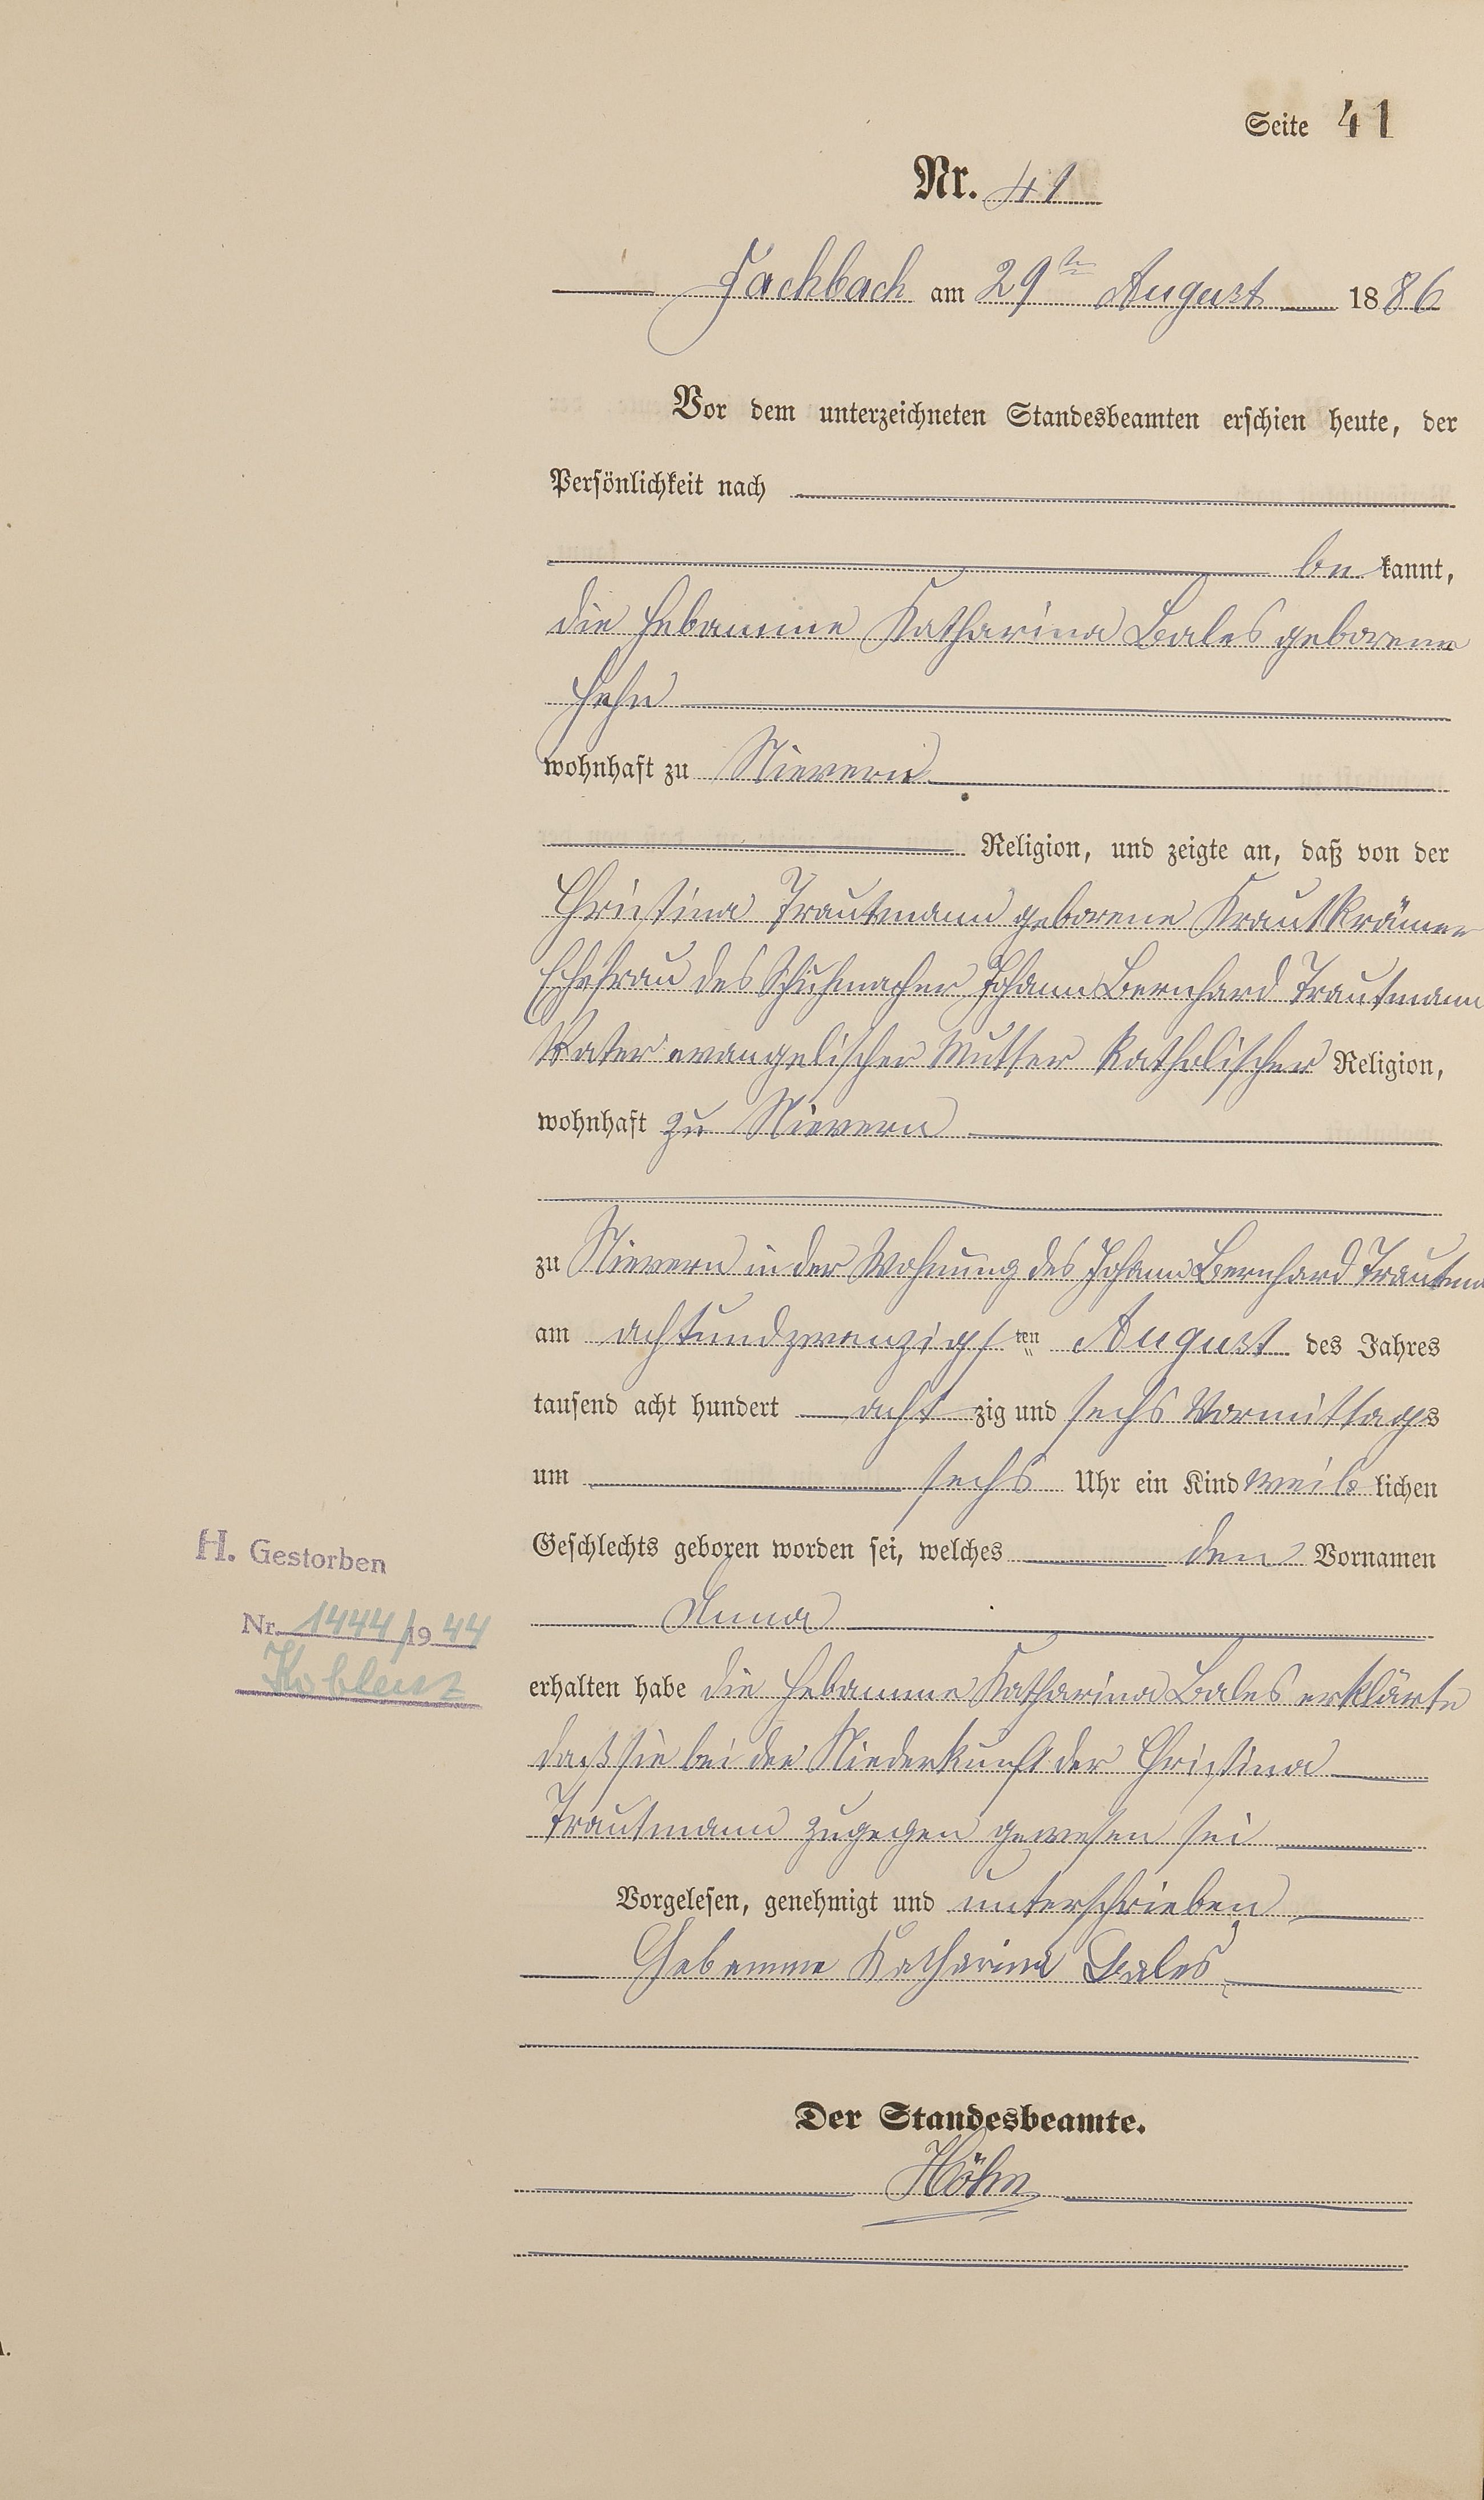 Seite 41
Nr. 41
Fachbach am 29ten August 1886
Vor dem unterzeichneten Standesbeamten erschien heute, der
Persönlichkeit nach
be kannt,
die Hebamme Katharina Bales geborene
Hehn
wohnhaft zu Nievern
Religion, und zeigte an, daß von der
Christina Trautmann geborene Krautkrämer
Ehefrau des Schuhmacher Johann Bernhard Trautmann
Vater evangelischer Mutter katholischer Religion,
wohnhaft zu Nievern
zu Nievern in der Wohnung des Johann Bernhard Trautm
am achtundzwanzigsten August des Jahres
tausend acht hundert acht zig und sechs Vormittags
um sechs Uhr ein Kind weib lichen
Geschlechts geboren worden sei, welches den Vornamen
H. Gestorben
Anna
Nr. 1444/1944
Koblenz
erhalten habe die Hebamme Katharina Bales erklärte
daß sie bei der Niederkunft der Christina
Trautmann zugegen gewesen sei
Vorgelesen, genehmigt und unterschrieben
Hebamme Katharina Bales
Der Standesbeamte.
Höhn